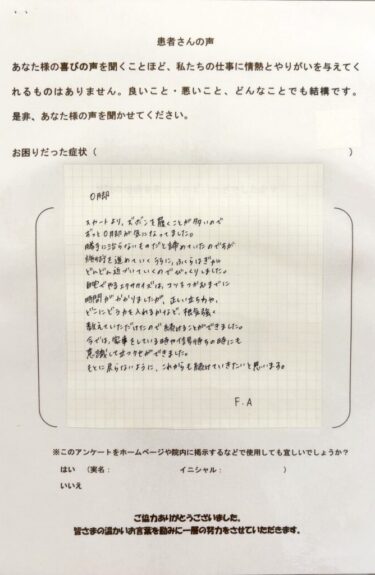 患者さんの声
あなた様の喜びの声を聞くことほど、私たちの仕事に情熱とやりがいを与えてく
れるものはありません。良いこと・悪いこと、どんなことでも結構です。
是非、あなた様の声を聞かせてください。
お困りだった症状（　　　　　）
O脚
スカートより、ズボンを履くことが多いので
ずっとO脚が気になってました。
勝手に治らないものだと諦めていたのですが
施術を進めていくうちに、ふくらはぎが
どんどん近づいていくのでびっくりしました。
自宅でやるエクササイズは、コツをつかむまでに
時間がかかりましたが、正しい立ち方や、
どこにどう力を入れるかなど、根気強く
教えていただけたので続けることができました。
今では、家事をしている時や信号待ちの時にも
意識して立つクセができました。
もとに戻らないように、これからも続けていきたいと思います。
F.A
※このアンケートをホームページや院内に掲示するなどで使用しても宜しいでしょうか？
はい　（実名：　　　　　イニシャル：　　　　　）
いいえ
ご協力ありがとうございました。
皆さまの温かいお言葉を励みに一層の努力をさせていただきます。